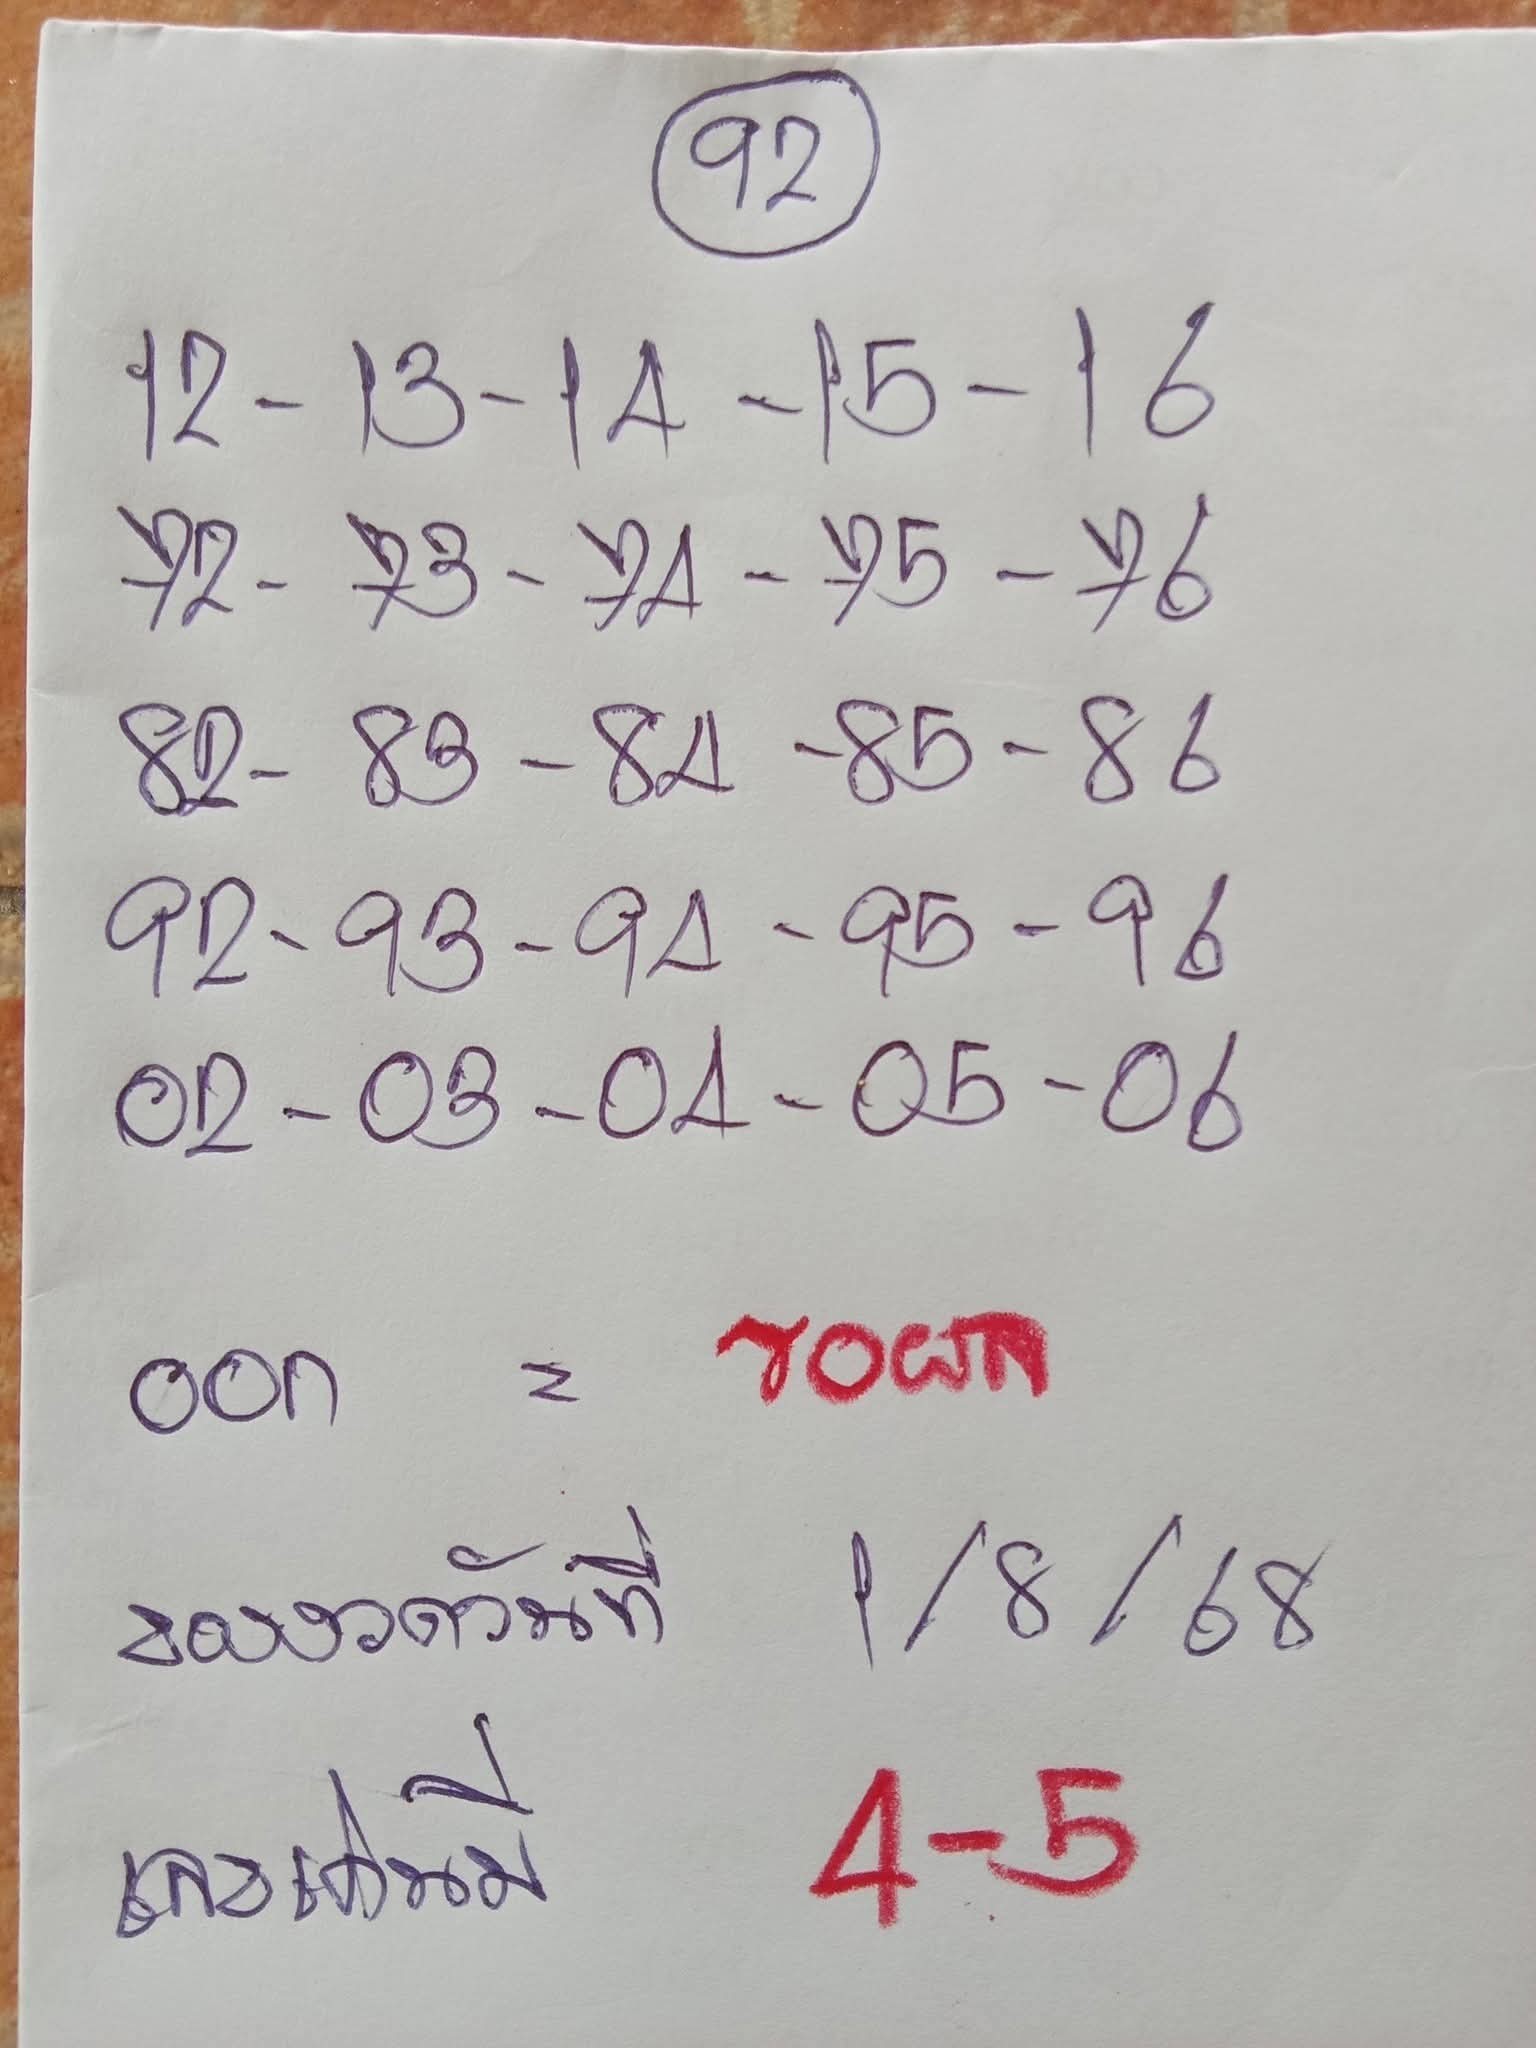 92
12 - 13 - 14 - 15 - 16
72 - 73 - 74 - 75 - 76
82 - 83 - 84 - 85 - 86
92 - 93 - 94 - 95 - 96
02 - 03 - 04 - 05 - 06
ออก = รอผล
ของงวดวันที่ 1/8/68
เลขเด่นมี 4-5